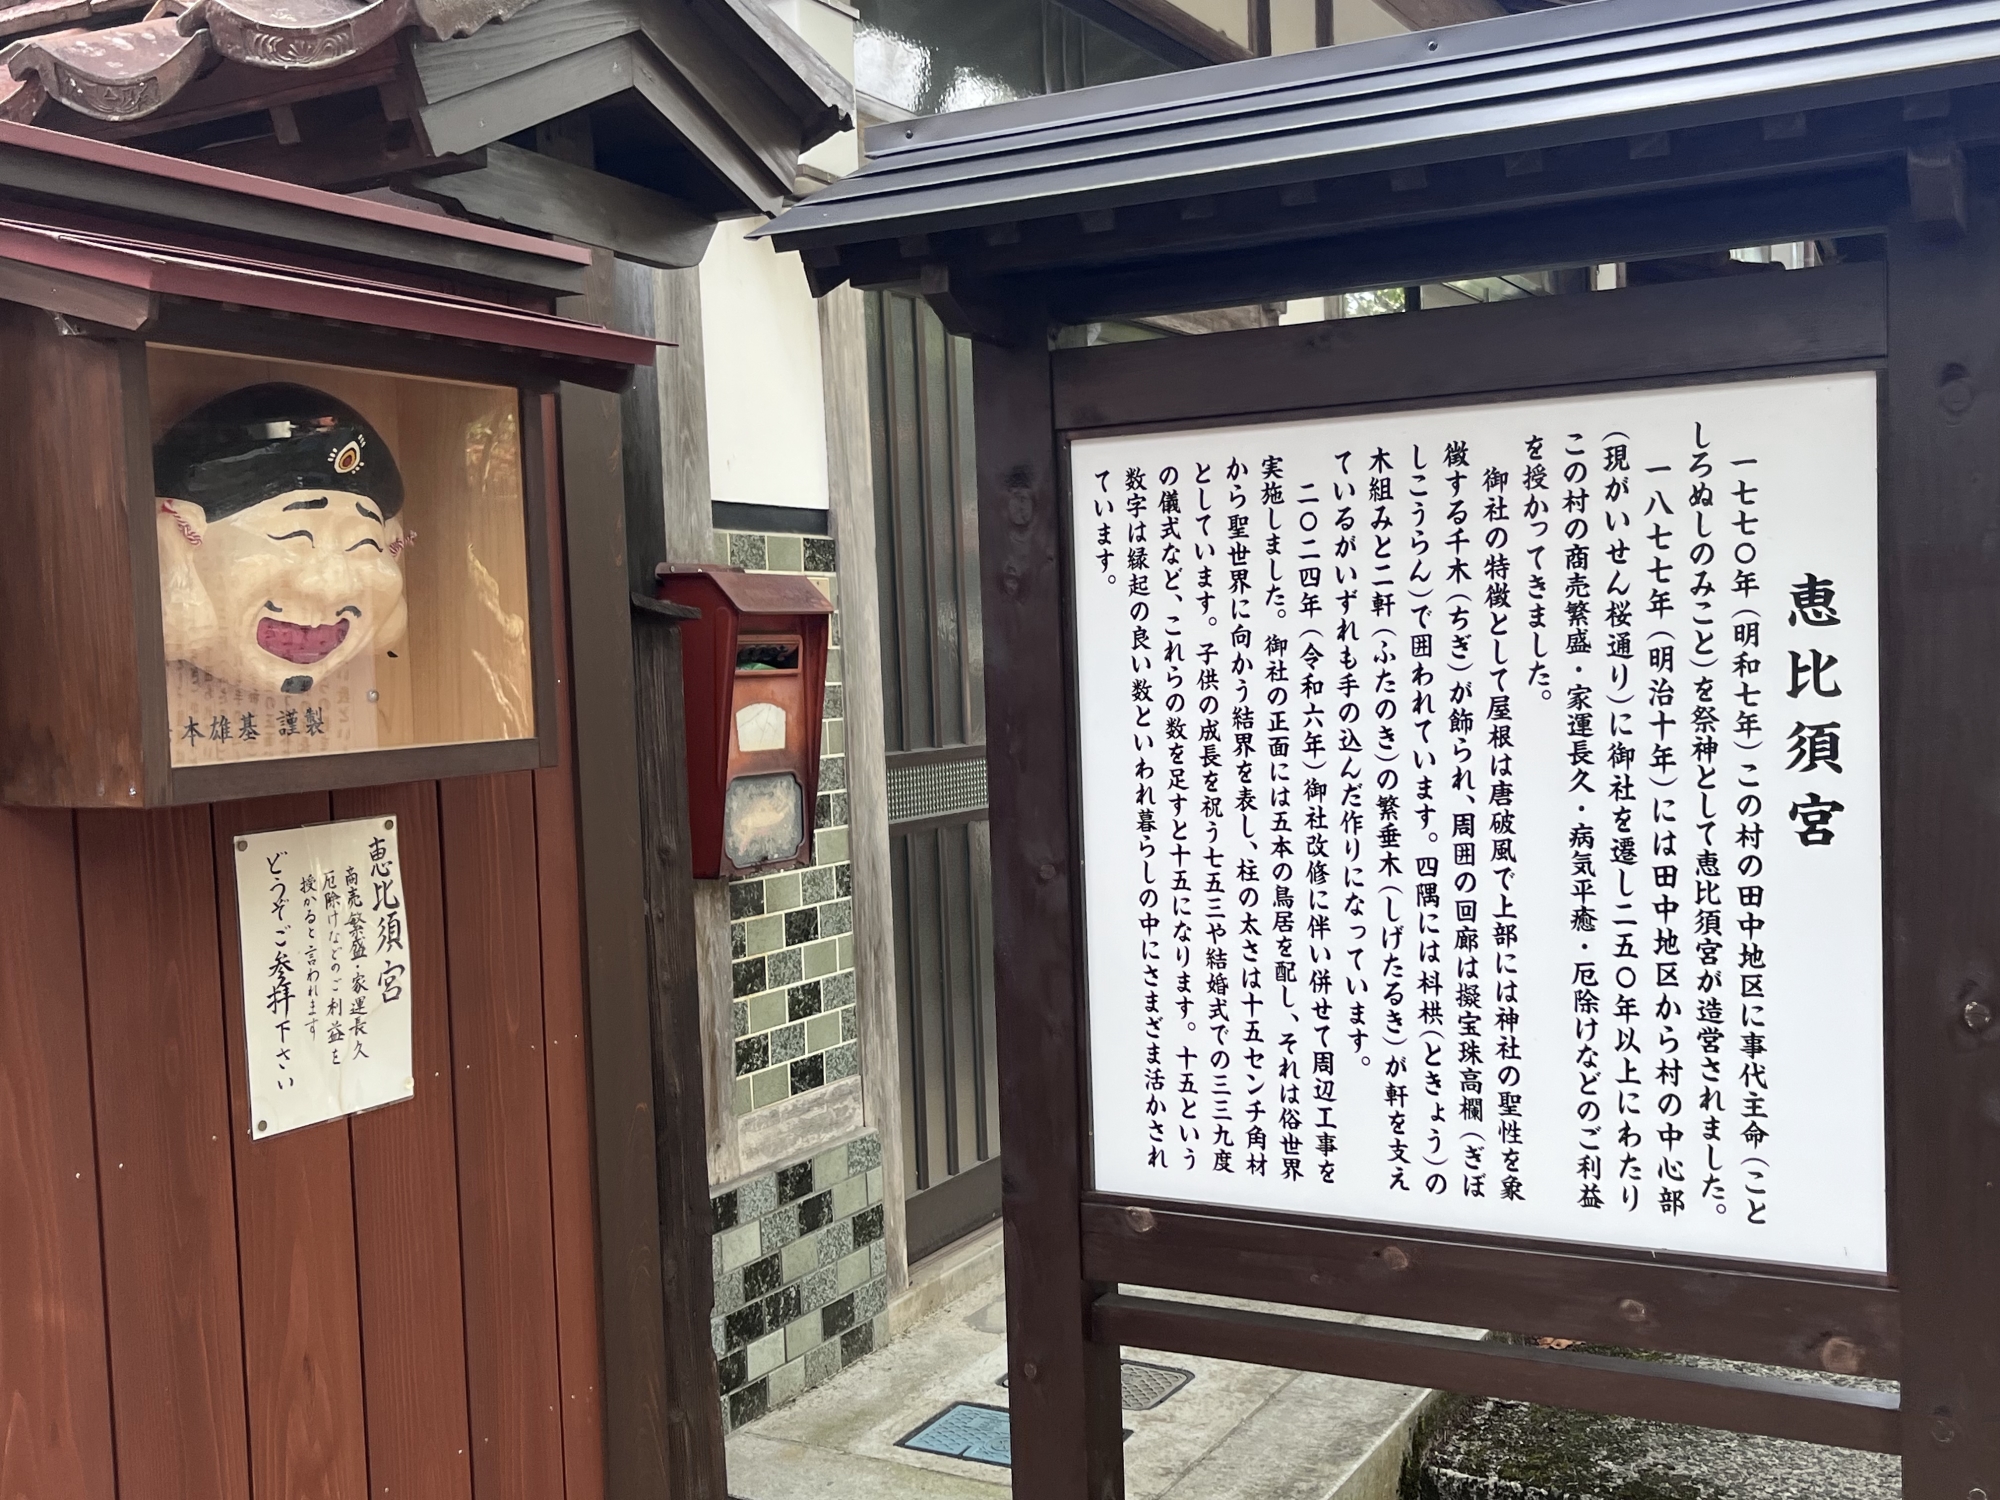 恵比須宮
一七七〇年（明和七年）この村の田中地区に事代主命（こと
しろぬしのみこと）を祭神として恵比須宮が造営されました。
一八七七年（明治十年）には田中地区から村の中心部
（現がいせん桜通り）に御社を遷し二五〇年以上にわたり
この村の商売繁盛・家運長久・病気平癒・厄除けなどのご利益
を授かってきました。
御社の特徴として屋根は唐破風で上部には神社の聖性を象
徴する千木（ちぎ）が飾られ、周囲の回廊は擬宝珠高欄（ぎぼ
しこうらん）で囲われています。四隅には枓栱（ときょう）の
木組みと二軒（ふたのき）の繁垂木（しげたるき）が軒を支え
ているがいずれも手の込んだ作りになっています。
二〇二四年（令和六年）御社改修に伴い併せて周辺工事を
実施しました。御社の正面には五本の鳥居を配し、それは俗世界
から聖世界に向かう結界を表し、柱の太さは十五センチ角材
としています。子供の成長を祝う七五三や結婚式での三三九度
の儀式など、これらの数を足すと十五になります。十五という
数字は縁起の良い数といわれ暮らしの中にさまざま活かされ
ています。
本雄基 謹製
恵比須宮
商売繁盛・家運長久
厄除けなどのご利益を
授かると言われます
どうぞご参拝下さい